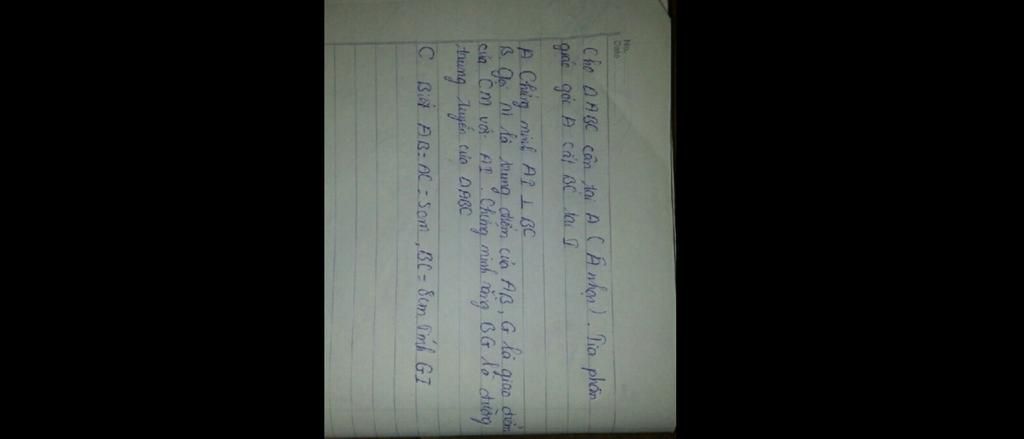 No.
Date
Cho ΔABC cân tại A (Â nhọn). Tia phân
giác góc A cắt BC tại I
A Chứng minh AI ⊥ BC
B. Gọi M là trung điểm của AB, G là giao điểm
của CM với AI. Chứng minh rằng BG là đường
trung tuyến của ΔABC
C Biết AB = AC = 5cm, BC = 8cm Tính GI